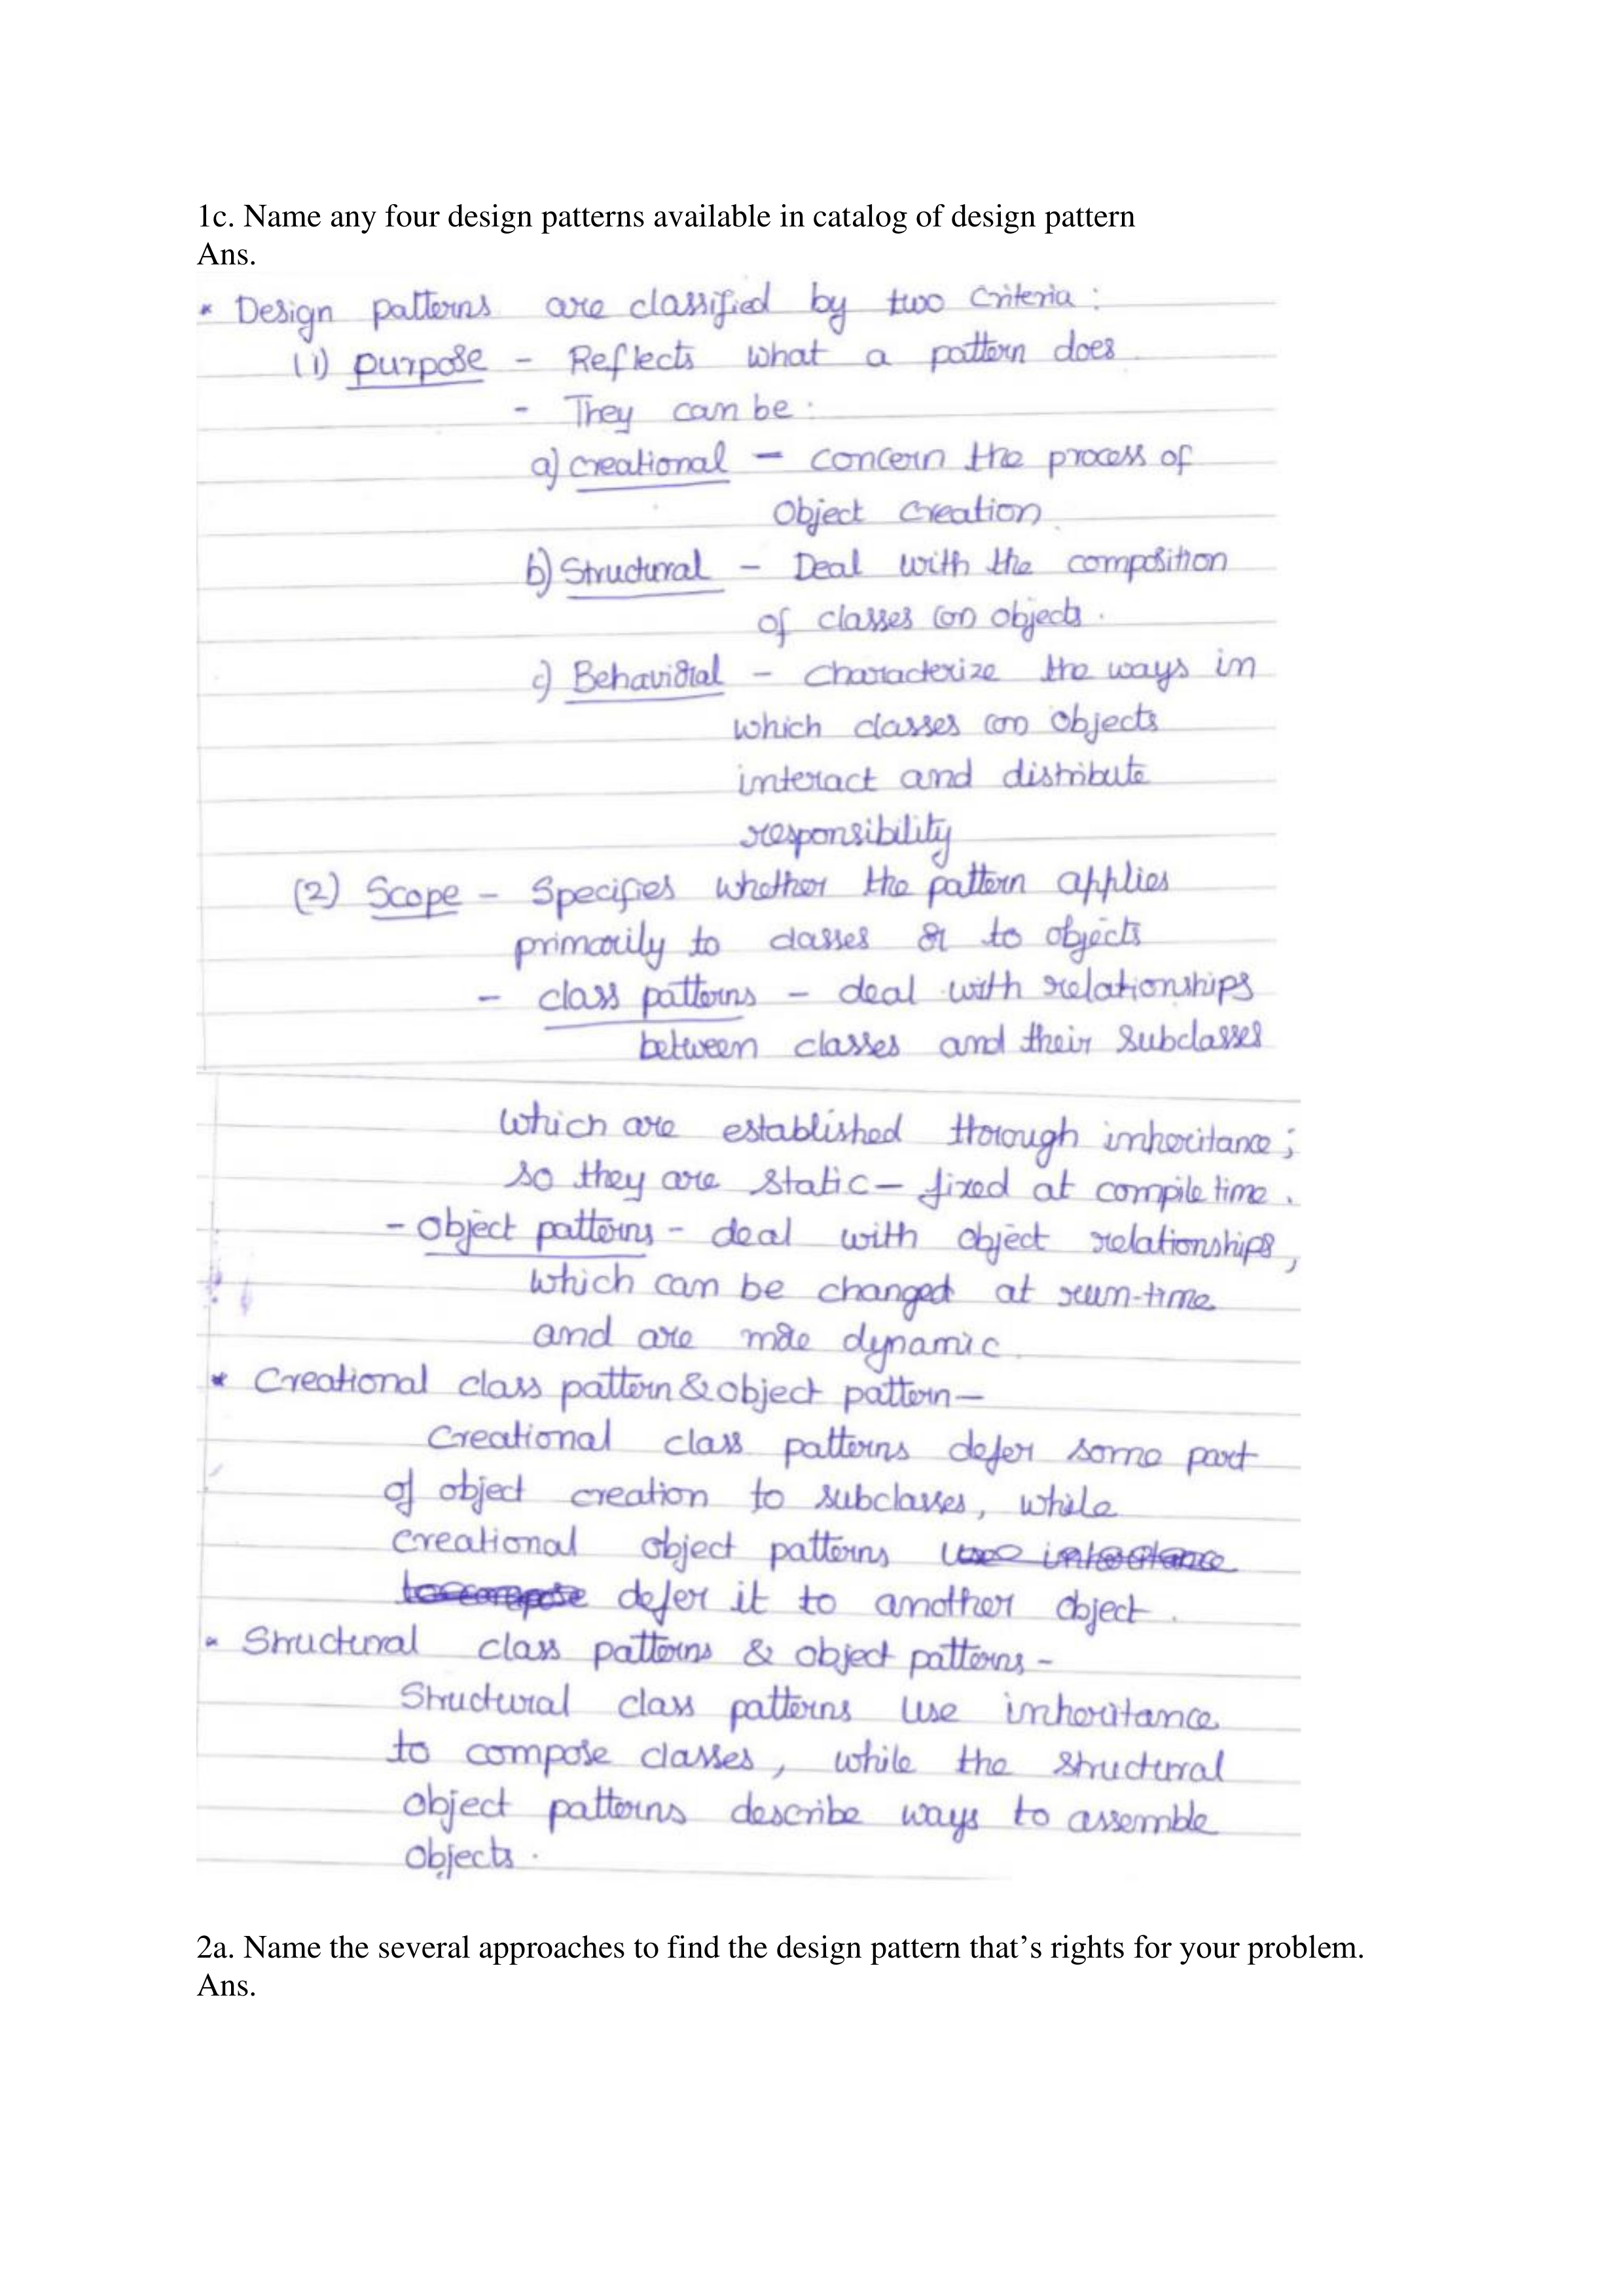 1c. Name any four design patterns available in catalog of design pattern
Ans.
* Design patterns are classified by two criteria :
(1) purpose - Reflects what a pattern does
- They can be :
a) creational - concern the process of
Object creation
b) Structural - Deal with the composition
of classes (or) objects .
c) Behavioral - Characterize the ways in
which classes (or) objects
interact and distribute
responsibility
(2) Scope - Specifies whether the pattern applies
primarily to classes or to objects
- class patterns - deal with relationships
between classes and their subclasses
which are established through inheritance ;
so they are static - fixed at compile time .
- object patterns - deal with object relationships ,
which can be changed at run-time
and are more dynamic .
* Creational class pattern & object pattern -
Creational class patterns defer some part
of object creation to subclasses , while
creational object patterns
defer it to another object .
* Structural class patterns & object patterns -
Structural class patterns use inheritance
to compose classes , while the structural
object patterns describe ways to assemble
objects .
2a. Name the several approaches to find the design pattern that’s rights for your problem.
Ans.